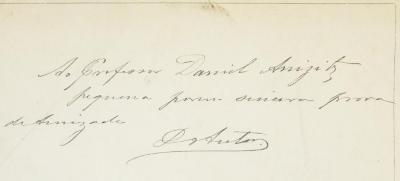 Ao Professor Daniel Anizitz
pequena porem sincera prova
de Amizade
O Autor